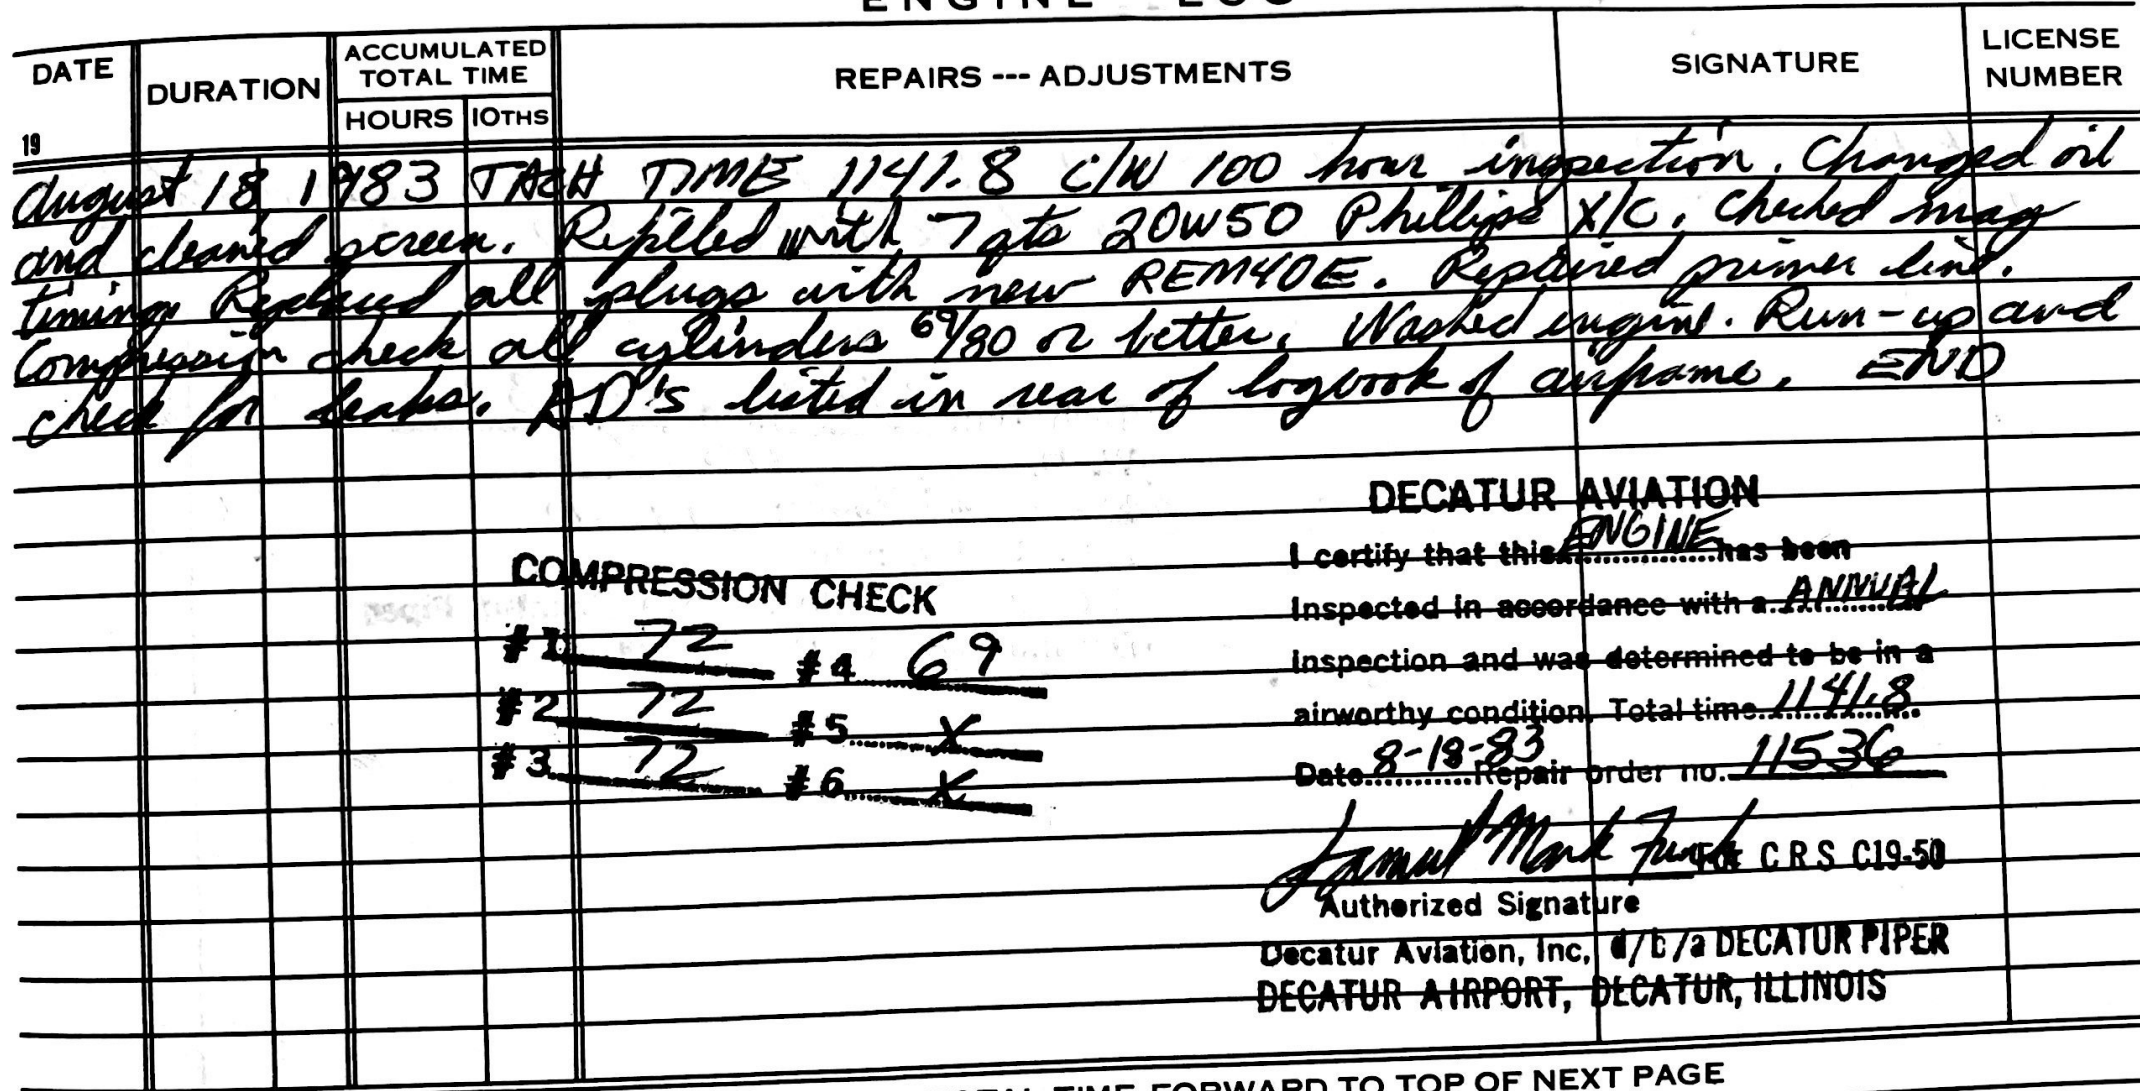 ENGINE LOG
DATE
19
DURATION
ACCUMULATED
TOTAL TIME
HOURS
10THS
REPAIRS --- ADJUSTMENTS
SIGNATURE
LICENSE
NUMBER
August 18 1983 TACH TIME 1141.8 C/W 100 hour inspection. Changed oil
and cleaned screen. Refilled with 7 qts 20W50 Phillips X/C. Checked mag
timing. Replaced all plugs with new REM40E. Repaired primer line.
Compression check all cylinders 69/80 or better. Washed engine. Run-up and
check for leaks. AD's listed in rear of logbook of airframe. END
COMPRESSION CHECK
#1 72 #4 69
#2 72 #5 X
#3 72 #6 X
DECATUR AVIATION
I certify that this ENGINE has been
Inspected in accordance with a ANNUAL
Inspection and was determined to be in a
airworthy condition. Total time 1141.8
Date 8-18-83 Repair order no. 11536
Mark C R S C19-50
Authorized Signature
Decatur Aviation, Inc, d/b/a DECATUR PIPER
DECATUR AIRPORT, DECATUR, ILLINOIS
TIME FORWARD TO TOP OF NEXT PAGE